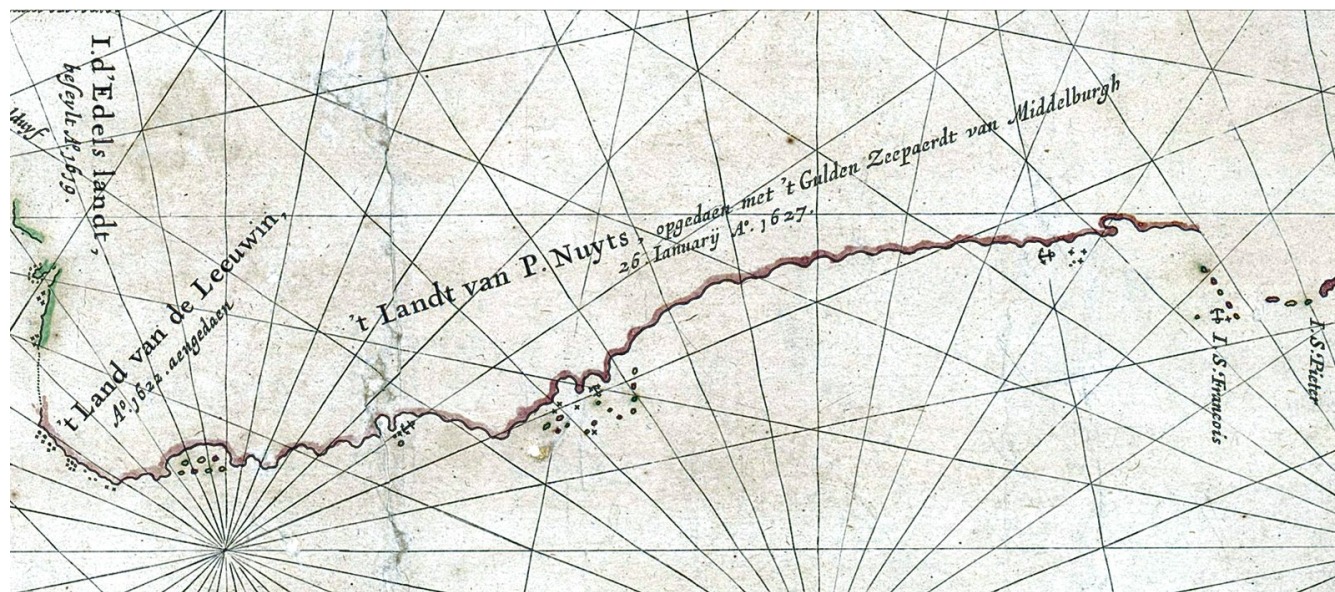 I.d'Edels landt,
beseylt Aº. 1619.
't Land van de Leeuwin,
Aº. 1622. aengedaen
't Landt van P. Nuyts, opgedaen met 't Gulden Zeepaerdt van Middelburgh
26. Ianuarij Aº. 1627.
I. S. Francois
I. S. Pieter